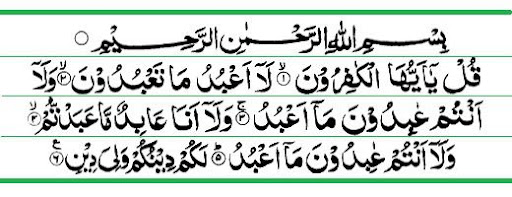 بِسْمِ اللهِ الرَّحْمٰنِ الرَّحِيْمِ ○
قُلْ يٰۤاَيُّهَا الْكٰفِرُوْنَ ۙ﴿۱﴾ لَاۤ اَعْبُدُ مَا تَعْبُدُوْنَ ۙ﴿۲﴾ وَلَاۤ
اَنْتُمْ عٰبِدُوْنَ مَاۤ اَعْبُدُ ۚ﴿۳﴾ وَلَاۤ اَنَا عَابِدٌ مَّا عَبَدْتُّمْ ۙ﴿۴﴾
وَلَاۤ اَنْتُمْ عٰبِدُوْنَ مَاۤ اَعْبُدُ ؕ﴿۵﴾ لَكُمْ دِيْنُكُمْ وَلِيَ دِيْنِ ﴿۶﴾